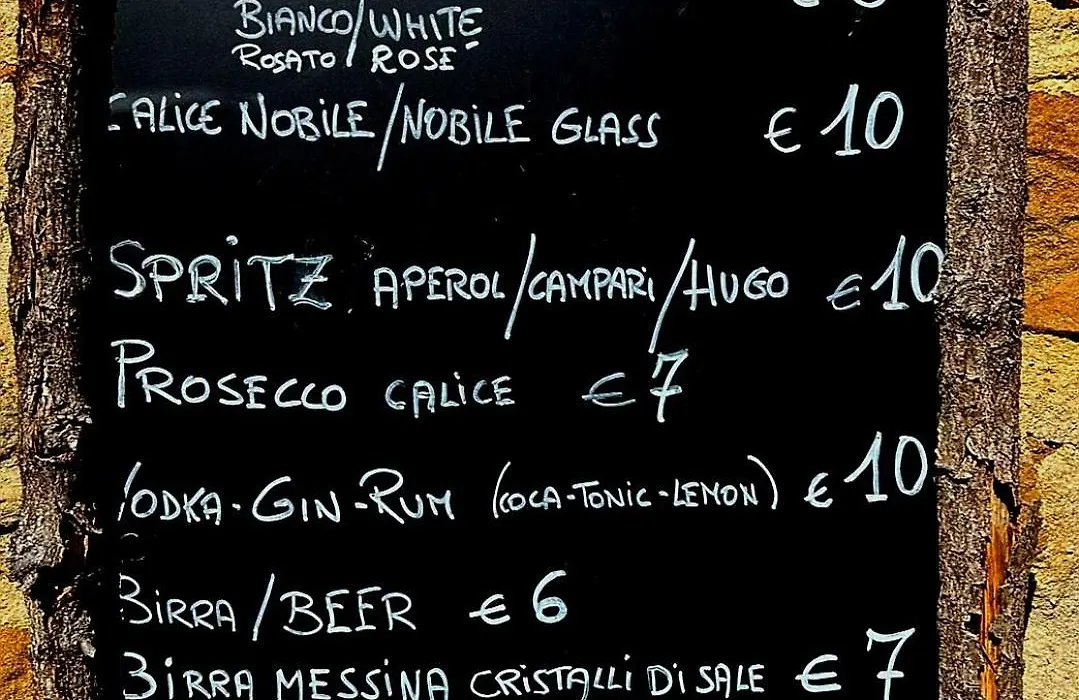 BIANCO/WHITE
ROSATO/ROSÉ
CALICE NOBILE/NOBILE GLASS € 10
SPRITZ APEROL/CAMPARI/HUGO € 10
PROSECCO CALICE € 7
VODKA-GIN-RUM (COCA-TONIC-LEMON) € 10
BIRRA/BEER € 6
BIRRA MESSINA CRISTALLI DI SALE € 7